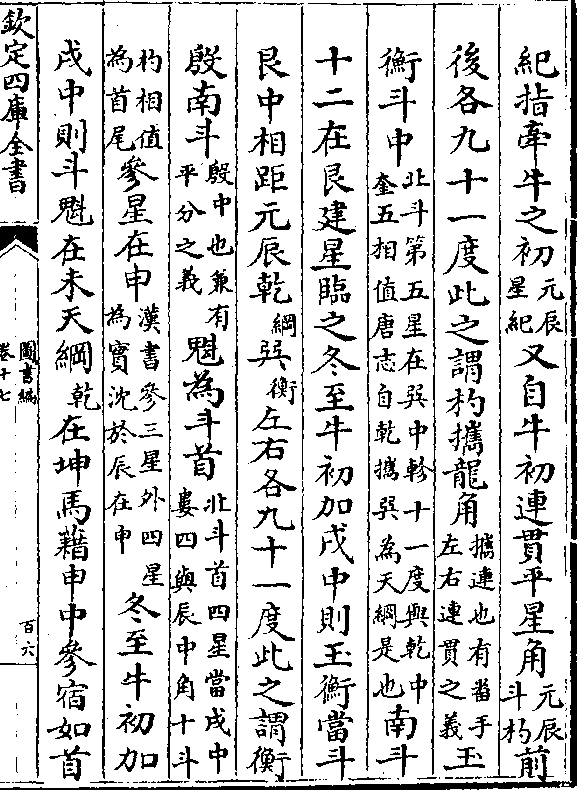 紀指牽牛之初元辰星紀又自牛初連貫平星角元辰斗杓前
後各九十一度此之謂杓攜龍角攜連也有當手左右連貫之義玉
衡斗中北斗第五星在巽中軫十一度與乾中奎五相值唐志自乾攜巽為天綱是也南斗
十二在艮建星臨之冬至牛初加戌中則玉衡當斗
艮中相距元辰乾綱巽衡左右各九十一度此之謂衡
殷南斗殷中也兼有平分之義魁為斗首北斗首四星當戌中婁四與辰中角十斗
杓相值為首尾參星在申漢書參三星外四星為實沈於辰在申冬至牛初加
戌中則斗魁在未天綱乾在坤馬藉申中參宿如首
欽定四庫全書
圖書編
卷十七
百六